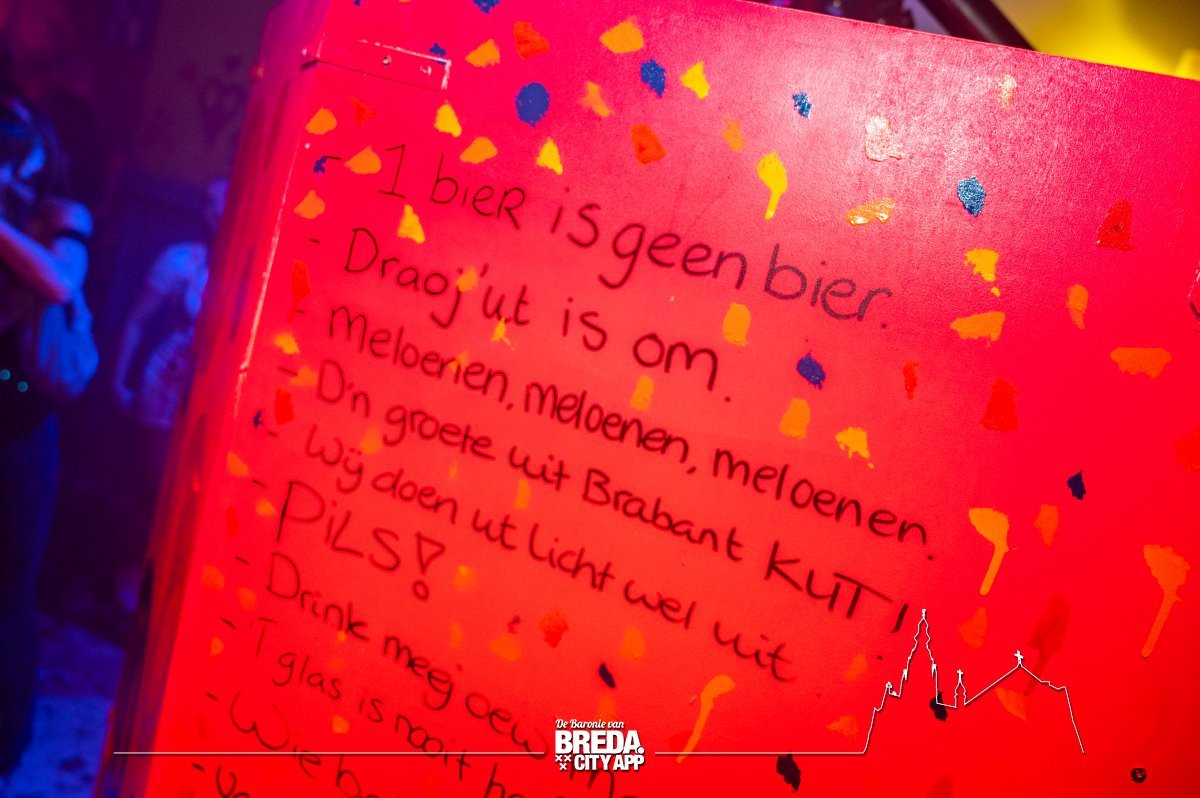 - 1 bier is geen bier.
- Draoj'ut is om.
- Meloenen, meloenen, meloenen.
- D'n groete uit Brabant KUT!
- Wij doen ut licht wel uit
- PILS!
- Drink meej oew
- T glas is nooit
- Wie
De Baronie van
BREDA.
CITY APP